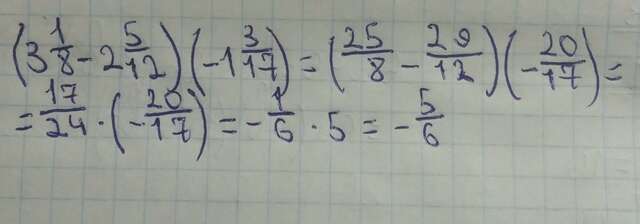 (3 1/8 - 2 5/12)(-1 3/17) = (25/8 - 29/12)(-20/17) =
= 17/24 · (-20/17) = -1/6 · 5 = -5/6